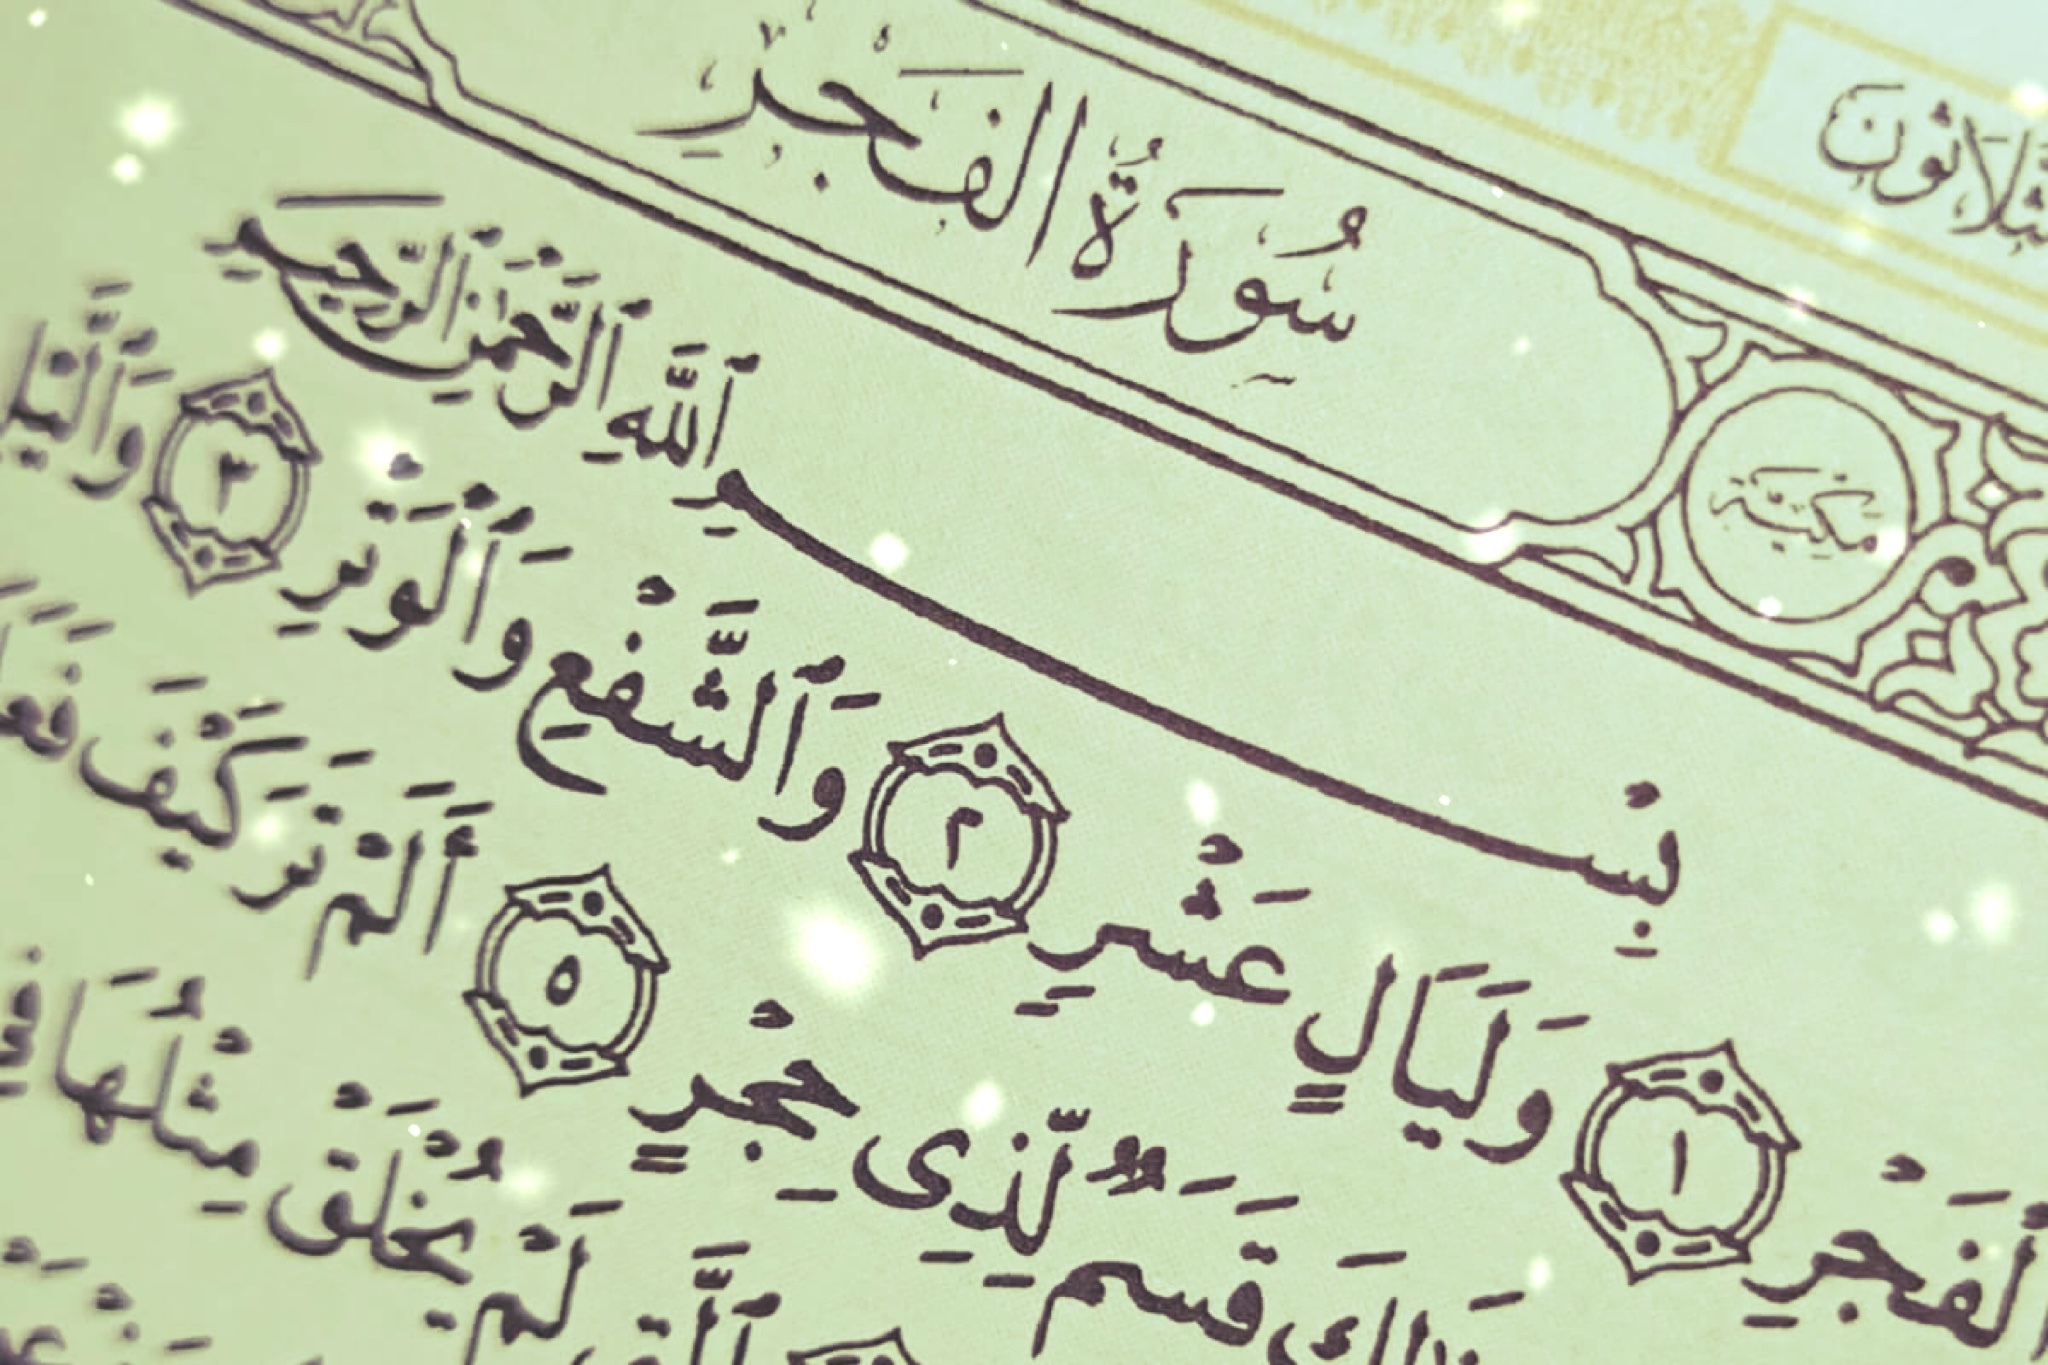 سُورَةُ الفَجْرِ
مَكِّيَّة
بِسْمِ ٱللَّهِ ٱلرَّحْمَٰنِ ٱلرَّحِيمِ
لْفَجْرِ ١ وَلَيَالٍ عَشْرٍ ٢ وَٱلشَّفْعِ وَٱلْوَتْرِ ٣ وَٱلَّيْلِ
ذَٰلِكَ قَسَمٌ لِّذِى حِجْرٍ ٥ أَلَمْ تَرَ كَيْفَ
لَمْ يُخْلَقْ مِثْلُهَا